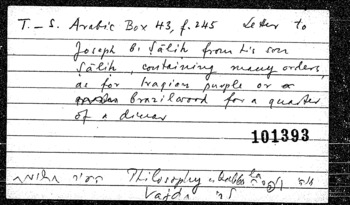 T-S. Arabic Box 43, f. 245 Letter to
Joseph b. Ṣāliḥ from his son
Ṣāliḥ, containing many orders,
as for Iraqian purple or
brazilwood for a quarter
of a dinar
101393
Philosophy
Vajda